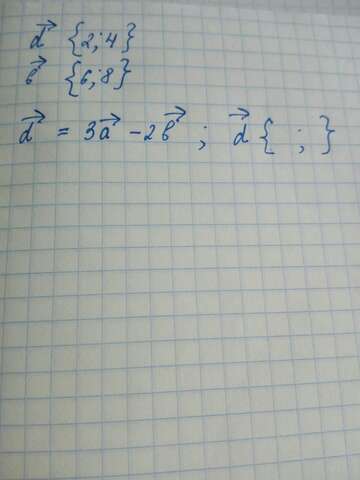 d⃗ {2;4}
b⃗ {6;8}
d⃗ = 3a⃗ - 2b⃗ ; d⃗ { ; }